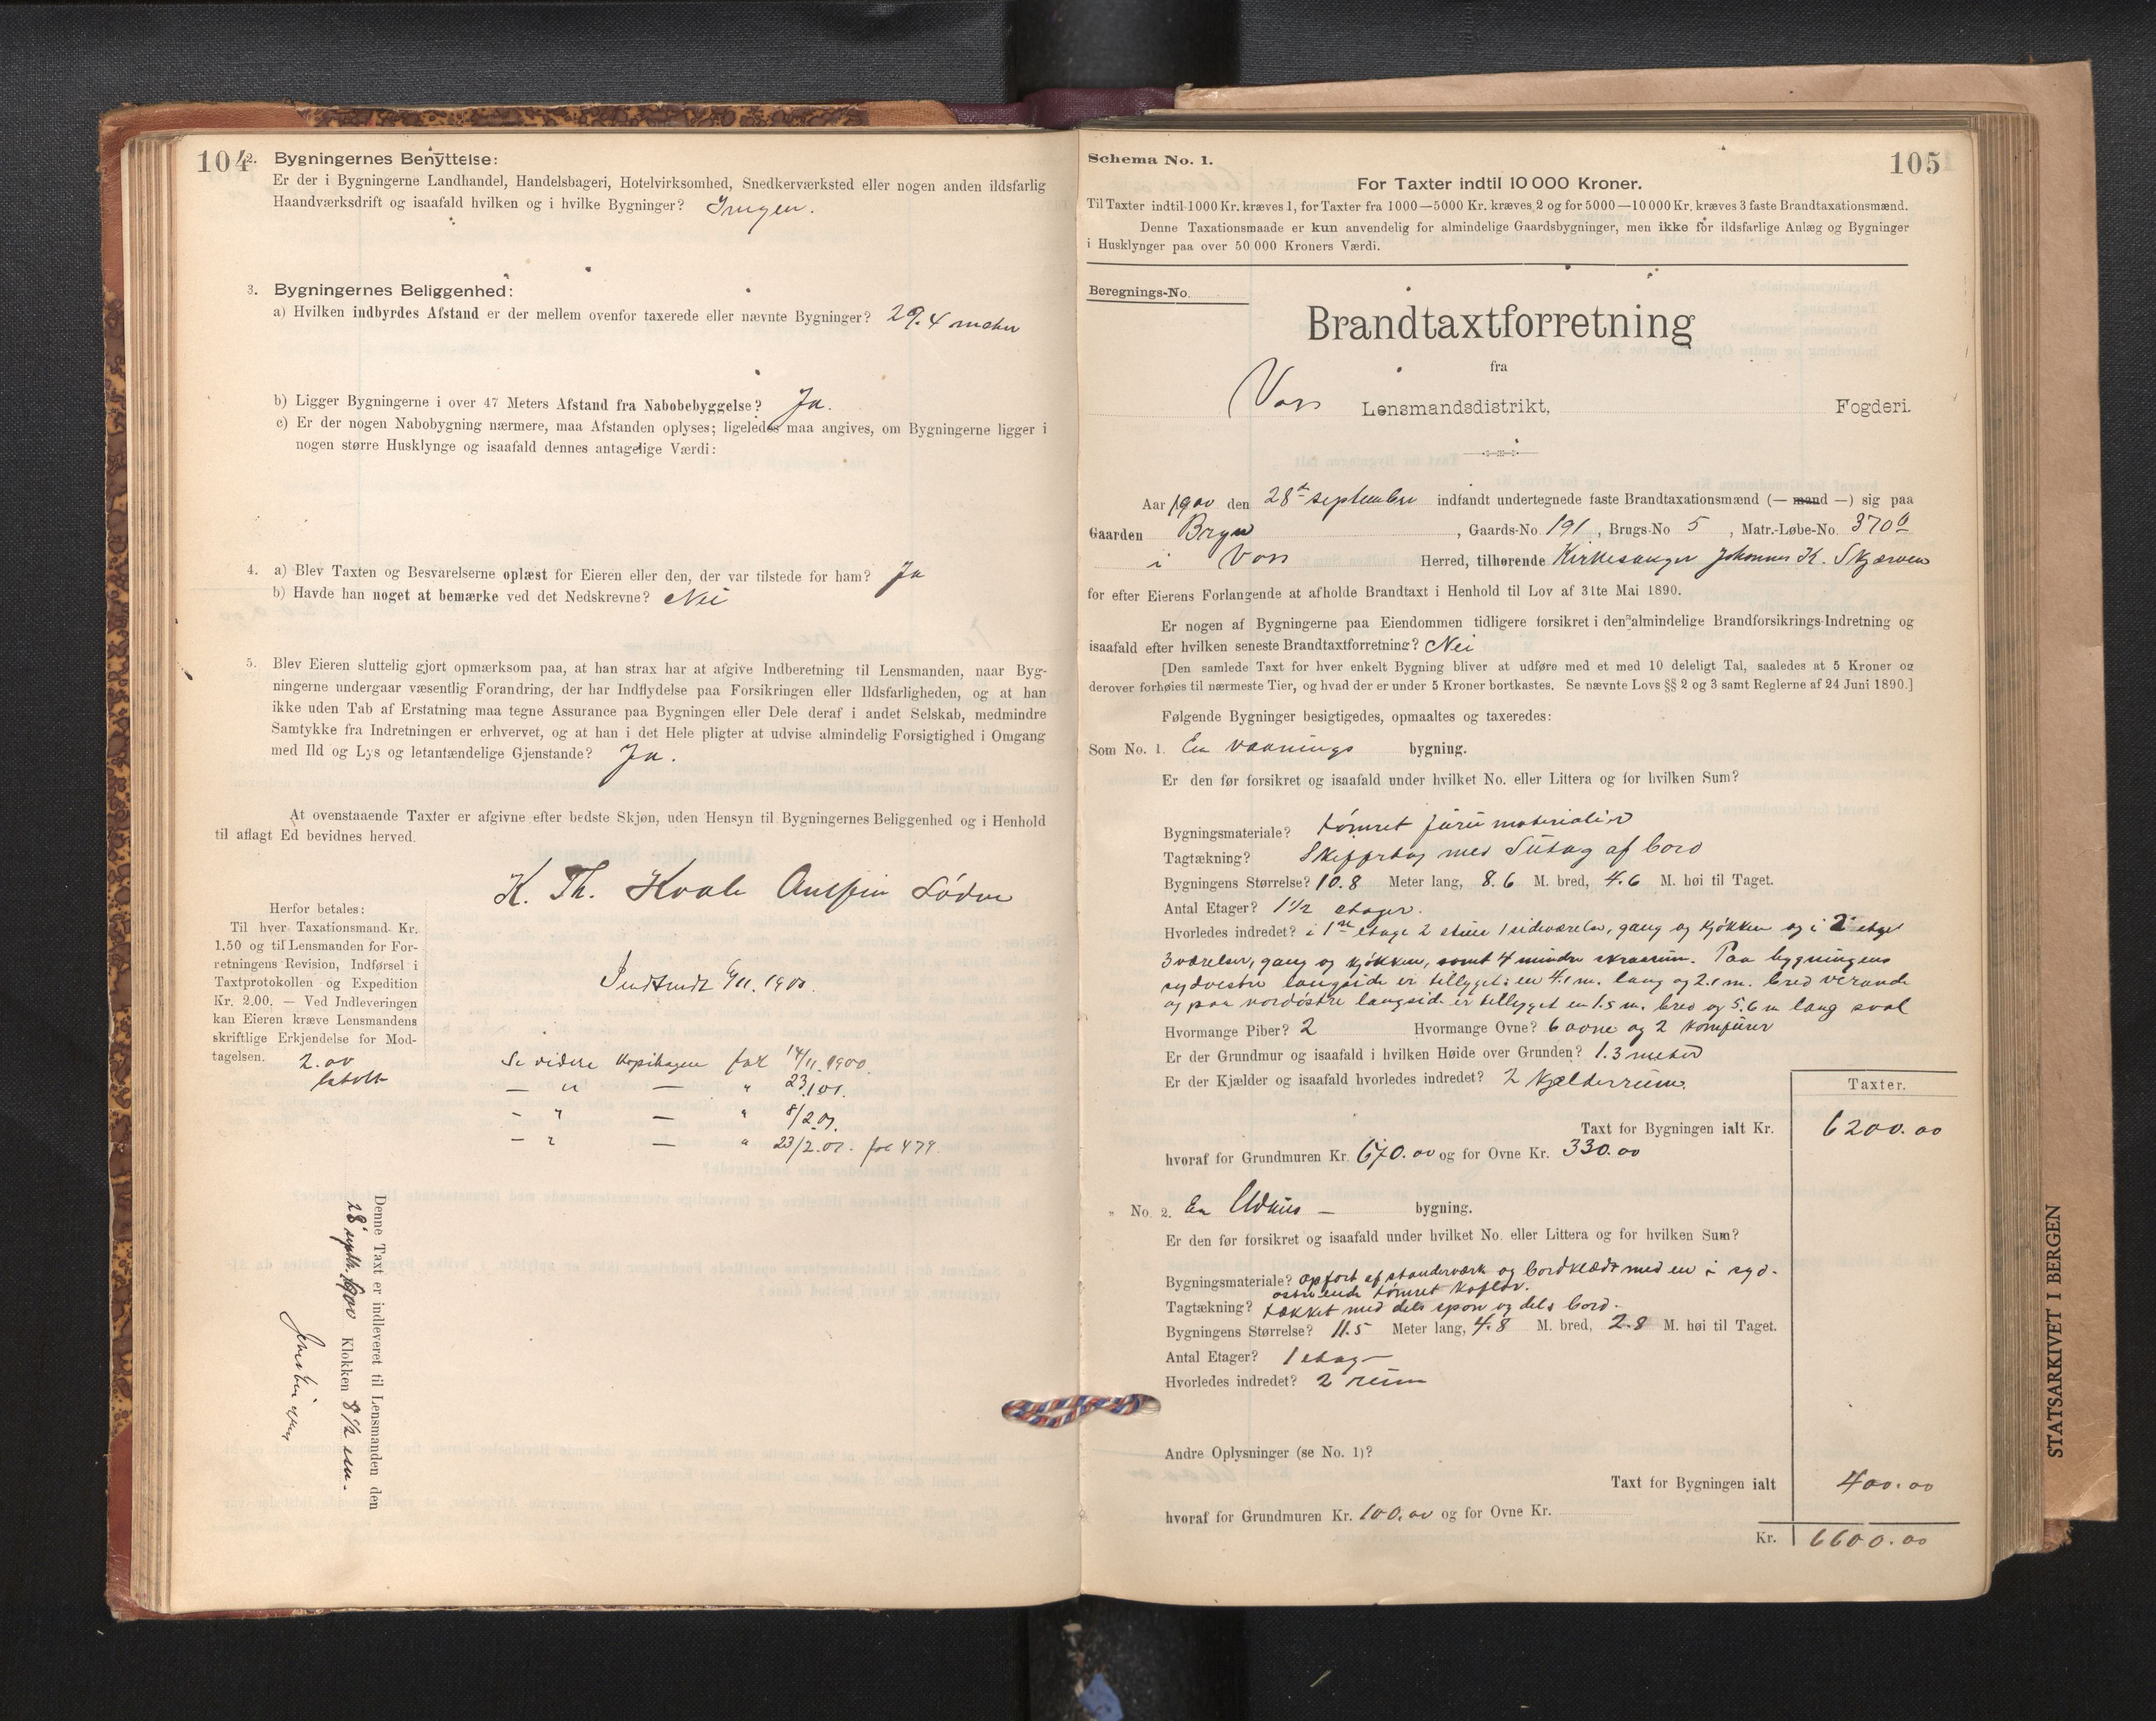 104
2. Bygningernes Benyttelse:
Er der i Bygningerne Landhandel, Handelsbageri, Hotelvirksomhed, Snedkerværksted eller nogen anden ildsfarlig
Haandværksdrift og isaafald hvilken og i hvilke Bygninger? Ingen.
3. Bygningernes Beliggenhed:
a) Hvilken indbyrdes Afstand er der mellem ovenfor taxerede eller nævnte Bygninger? 29.4 meter
b) Ligger Bygningerne i over 47 Meters Afstand fra Nabobebyggelse? Ja.
c) Er der nogen Nabobygning nærmere, maa Afstanden oplyses; ligeledes maa angives, om Bygningerne ligger i
nogen større Husklynge og isaafald dennes antagelige Værdi:
4. a) Blev Taxten og Besvarelserne oplæst for Eieren eller den, der var tilstede for ham? Ja
b) Havde han noget at bemærke ved det Nedskrevne? Nei
5. Blev Eieren sluttelig gjort opmærksom paa, at han strax har at afgive Indberetning til Lensmanden, naar Byg-
ningerne undergaar væsentlig Forandring, der har Indflydelse paa Forsikringen eller Ildsfarligheden, og at han
ikke uden Tab af Erstatning maa tegne Assurance paa Bygningen eller Dele deraf i andet Selskab, medmindre
Samtykke fra Indretningen er erhvervet, og at han i det Hele pligter at udvise almindelig Forsigtighed i Omgang
med Ild og Lys og letantændelige Gjenstande? Ja.
At ovenstaaende Taxter er afgivne efter bedste Skjøn, uden Hensyn til Bygningernes Beliggenhed og i Henhold
til aflagt Ed bevidnes herved.
K. Th. Kvale
Herfor betales:
Til hver Taxationsmand Kr.
1,50 og til Lensmanden for For-
retningens Revision, Indførsel i
Taxtprotokollen og Expedition
Kr. 2,00. — Ved Indleveringen
kan Eieren kræve Lensmandens
skriftlige Erkjendelse for Mod-
tagelsen. 2.00
betalt
Indsendt 6/11. 1900.
Se videre Kopibogen for 14/11.1900.
— " — " 23/1 01.
— " — " 8/2.01.
— " — " 23/2.01. fol 479.
Denne Taxt er indleveret til Lensmanden den
28 septb. 1900 Klokken 8 1/2 em.
Schema No. 1.
105
For Taxter indtil 10 000 Kroner.
Til Taxter indtil 1000 Kr. kræves 1, for Taxter fra 1000—5000 Kr. kræves 2 og for 5000—10 000 Kr. kræves 3 faste Brandtaxationsmænd.
Denne Taxationsmaade er kun anvendelig for almindelige Gaardsbygninger, men ikke for ildsfarlige Anlæg og Bygninger
i Husklynger paa over 50 000 Kroners Værdi.
Beregnings-No.
Brandtaxtforretning
fra
Voss Lensmandsdistrikt, Fogderi.
Aar 1900 den 28de september indfandt undertegnede faste Brandtaxationsmænd (— mand —) sig paa
Gaarden Bryn, Gaards-No 191, Brugs-No 5, Matr.-Løbe-No. 370
i Voss Herred, tilhørende Kirkesanger Johannes K. Skjerven
for efter Eierens Forlangende at afholde Brandtaxt i Henhold til Lov af 31te Mai 1890.
Er nogen af Bygningerne paa Eiendommen tidligere forsikret i den almindelige Brandforsikrings-Indretning og
isaafald efter hvilken seneste Brandtaxtforretning? Nei
[Den samlede Taxt for hver enkelt Bygning bliver at udføre med et med 10 deleligt Tal, saaledes at 5 Kroner og
derover forhøies til nærmeste Tier, og hvad der er under 5 Kroner bortkastes. Se nævnte Lovs §§ 2 og 3 samt Reglerne af 24 Juni 1890.]
Følgende Bygninger besigtigedes, opmaaltes og taxeredes:
Som No. 1. En vaanings bygning.
Er den før forsikret og isaafald under hvilket No. eller Littera og for hvilken Sum?
Bygningsmateriale? tømret furu materialier
Tagtækning? Skiffertag med Sutag af bord
Bygningens Størrelse? 10.8 Meter lang, 8.6 M. bred, 4.6 M. høi til Taget.
Antal Etager? 1 1/2 etager.
Hvorledes indredet? i 1ste etage 2 stuer 1 sideværelse, gang og kjøkken og i 2 etage
3 værelser, gang og kjøkken, samt 4 mindre skraarum. Paa bygningens
sydvestre langside er tillygget: en 4.1 m. lang og 2.1 m. bred veranda
og paa nordøstre langside er tillygget en 1.5 m. bred og 5.6 m lang sval
Hvormange Piber? 2 Hvormange Ovne? 6 ovne og 2 komfurer
Er der Grundmur og isaafald i hvilken Høide over Grunden? 1.3 meter
Er der Kjælder og isaafald hvorledes indredet? 2 kjælderrum.
Taxter.
Taxt for Bygningen ialt Kr. 6200.00
hvoraf for Grundmuren Kr. 670.00 og for Ovne Kr. 330.00
" No. 2. En Udhus — bygning.
Er den før forsikret og isaafald under hvilket No. eller Littera og for hvilken Sum?
Bygningsmateriale? opført af standerværk og bordklædt med en i syd-
østre ende tømret
Tagtækning? tækket med dels spon og dels bord.
Bygningens Størrelse? 11.5 Meter lang, 4.8 M. bred, 2.8 M. høi til Taget.
Antal Etager? 1 etage
Hvorledes indredet? 2 rum
Andre Oplysninger (se No. 1)?
Taxt for Bygningen ialt 400.00
hvoraf for Grundmuren Kr. 100.00 og for Ovne Kr.
Kr. 6600.00
STATSARKIVET I BERGEN